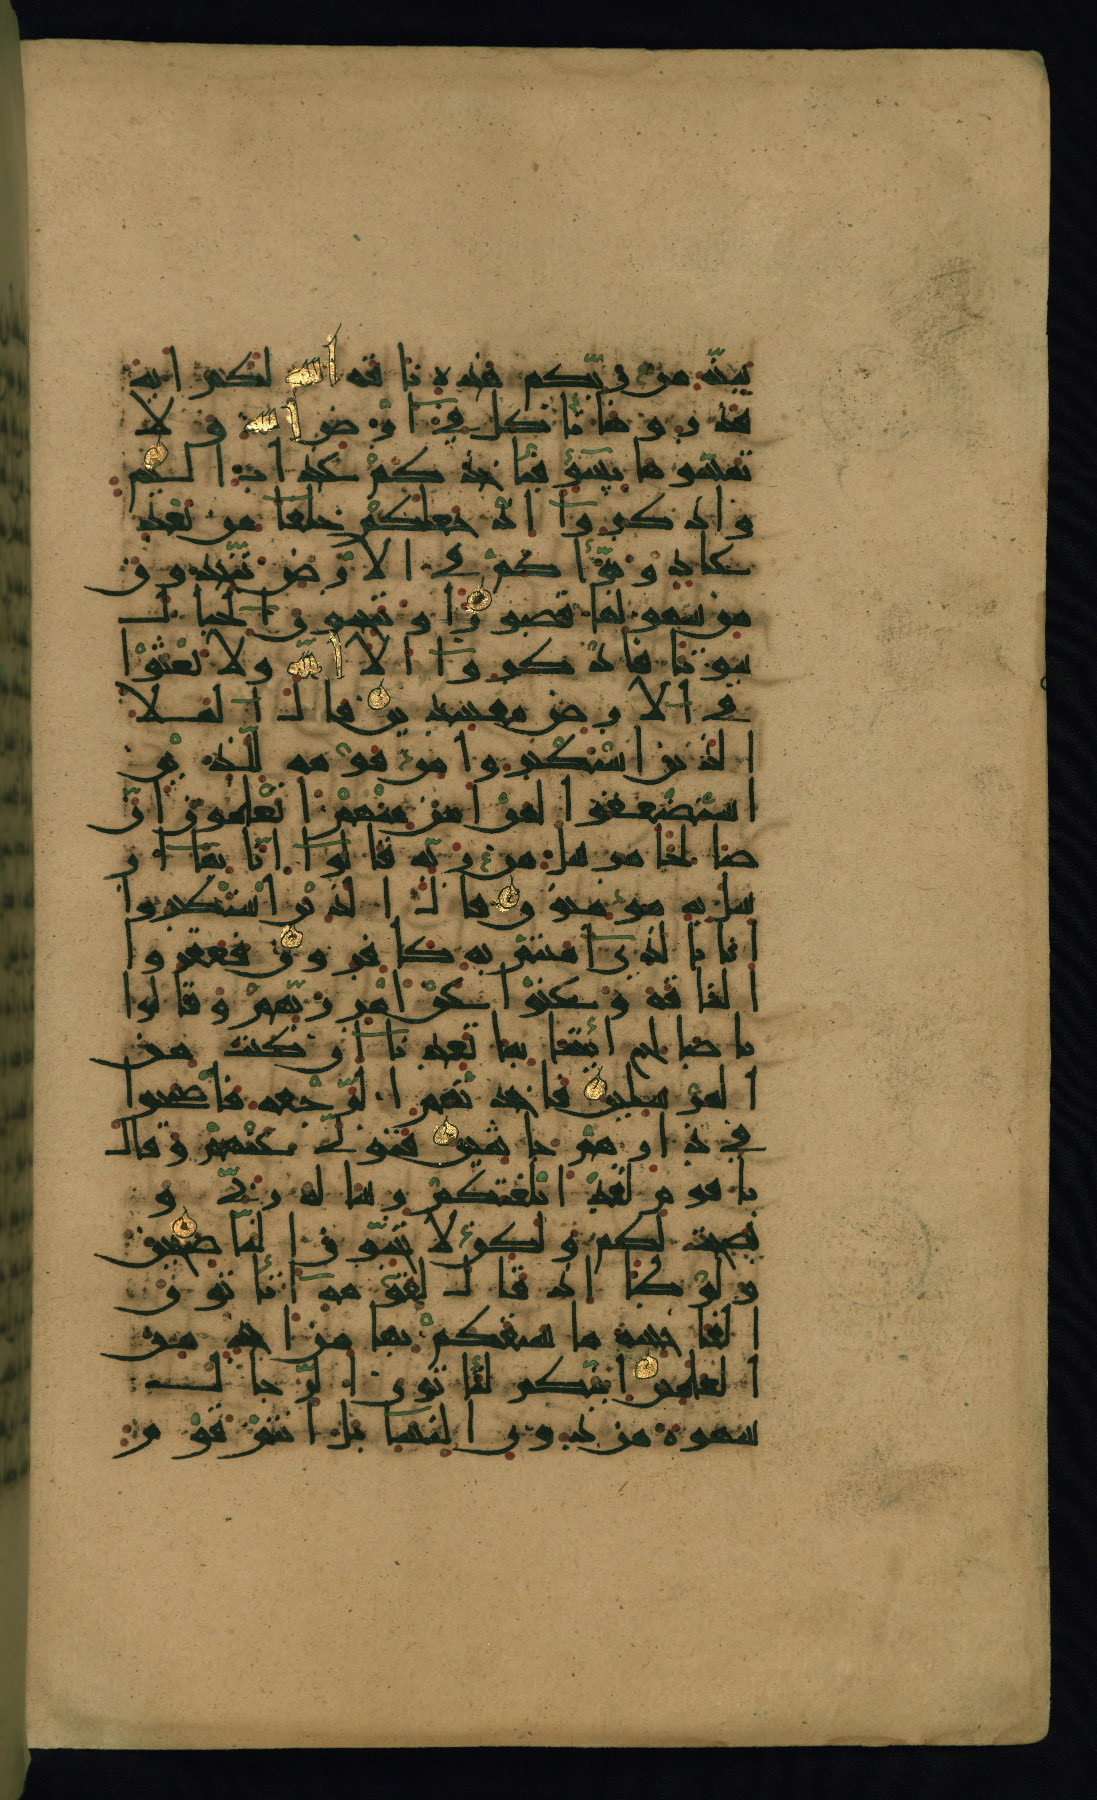 بينة من ربكم هذه ناقة الله لكم اية
فذروها تاكل في ارض الله و لا
تمسوها بسوء فياخذكم عذاب اليم
واذكروا اذ جعلكم خلفا من بعد
عاد وبوأكم في الارض تتخذون
من سهولها قصورا وتنحتون الجبال
بيوتا فاذكروا الا الله ولا تعثوا
في الارض مفسدين قال الملا
الذين استكبروا من قومه للذين
استضعفوا لمن امن منهم اتعلمون ان
صالحا مرسل من ربه قالوا انا بما ار
سل به مؤمنون قال الذين استكبروا
انا بالذي امنتم به كافرون فعقروا
الناقة وعتوا عن امر ربهم وقالوا
يا صالح ائتنا بما تعدنا ان كنت من
المرسلين فاخذتهم الرجفة فاصبحوا
في دارهم جاثمين فتولى عنهم وقال
يا قوم لقد ابلغتكم رسالة ربي و
نصحت لكم ولكن لا تحبون الناصحين
ولوطا اذ قال لقومه اتاتون
الفاحشة ما سبقكم بها من احد من
العالمين انكم لتاتون الرجال
شهوة من دون النسا بل انتم قوم